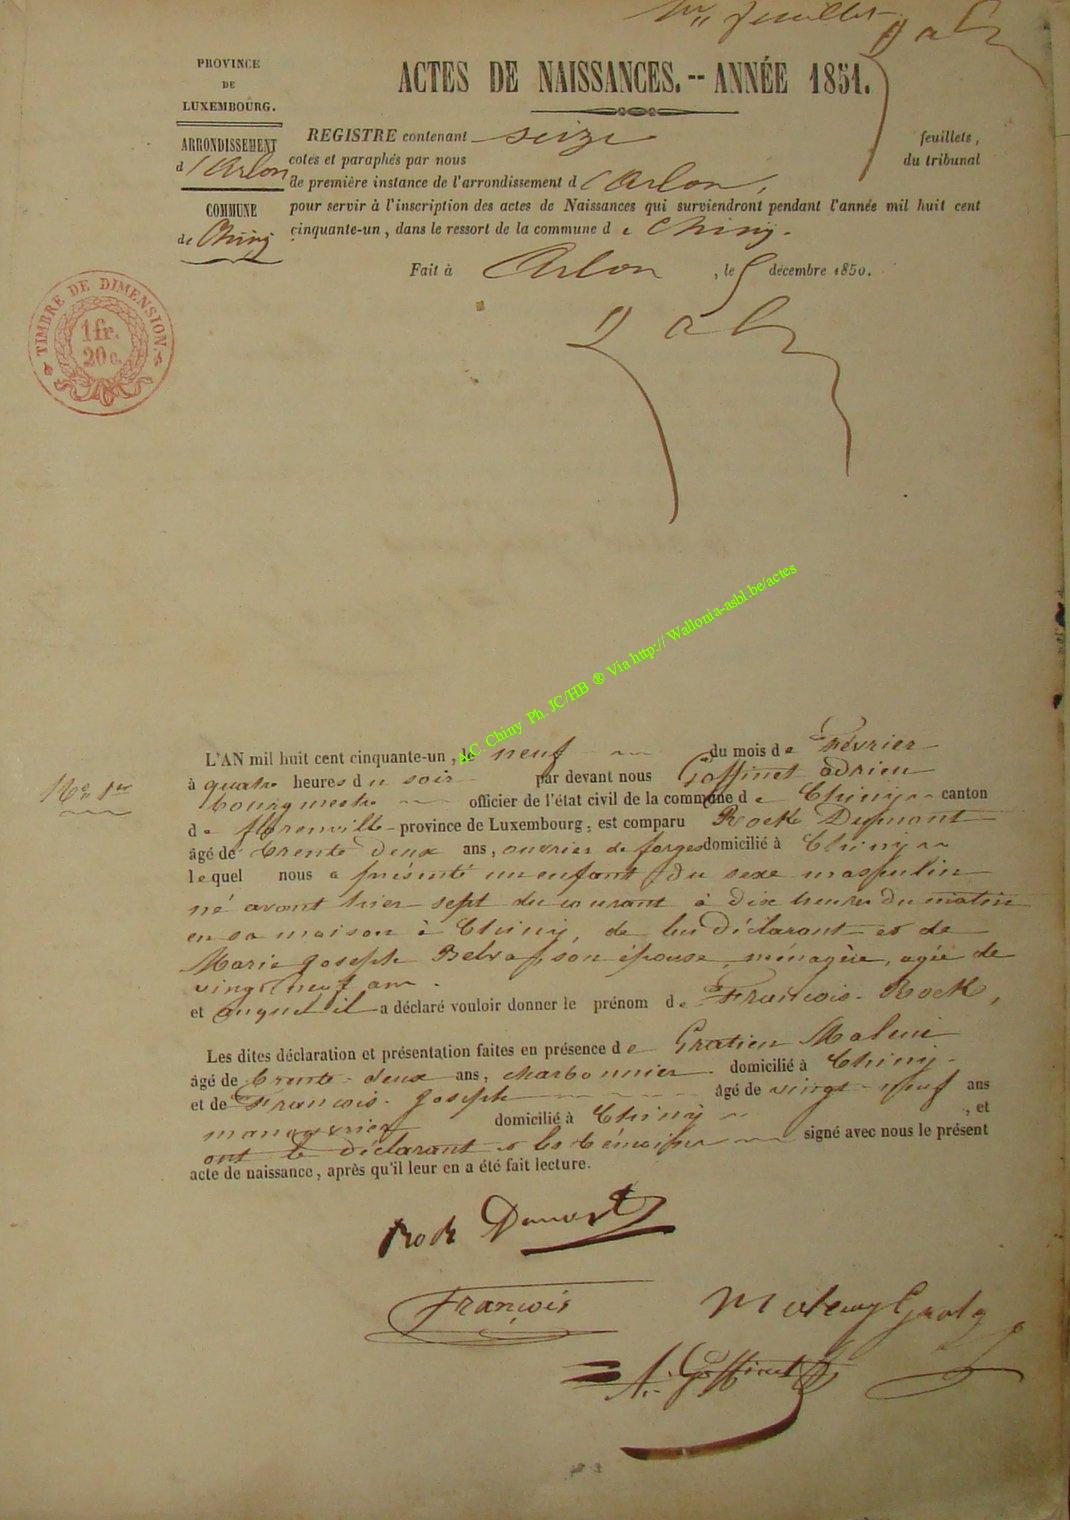 1er feuillet
PROVINCE
DE
LUXEMBOURG.
ARRONDISSEMENT
d'Arlon
COMMUNE
de Chiny
TIMBRE DE DIMENSION
1 fr.
20 c.
ACTES DE NAISSANCES.-- ANNÉE 1851.
REGISTRE contenant seize feuillets,
cotés et paraphés par nous du tribunal
de première instance de l'arrondissement d'Arlon,
pour servir à l'inscription des actes de Naissances qui surviendront pendant l'année mil huit cent
cinquante-un, dans le ressort de la commune de Chiny.
Fait à Arlon, le 5 décembre 1850.
A.C. Chiny Ph. JC/HB ® Via http:// Wallonia-asbl.be/actes
No 1er
L'AN mil huit cent cinquante-un, le neuf du mois de Février
à quatre heures du soir par devant nous Goffinet adrien
bourgmestre officier de l'état civil de la commune de Chiny canton
de florenville province de Luxembourg, est comparu Rock Dumont
âgé de trente deux ans, ouvrier de forges domicilié à Chiny
lequel nous a présenté un enfant du sexe masculin
né avant hier sept du courant à dix heures du matin
en sa maison à Chiny, de lui déclarant et de
Marie joseph son épouse, ménagère, agée de
vingt neuf ans.
et auquel il a déclaré vouloir donner le prénom de François-Rock,
Les dites déclaration et présentation faites en présence de Gratien
âgé de trente-deux ans, charbonnier domicilié à Chiny
et de François joseph âgé de vingt-neuf ans
manouvrier domicilié à Chiny, et
ont le déclarant et les témoins signé avec nous le présent
acte de naissance, après qu'il leur en a été fait lecture.
Rock Dumont
François
A. Goffinet